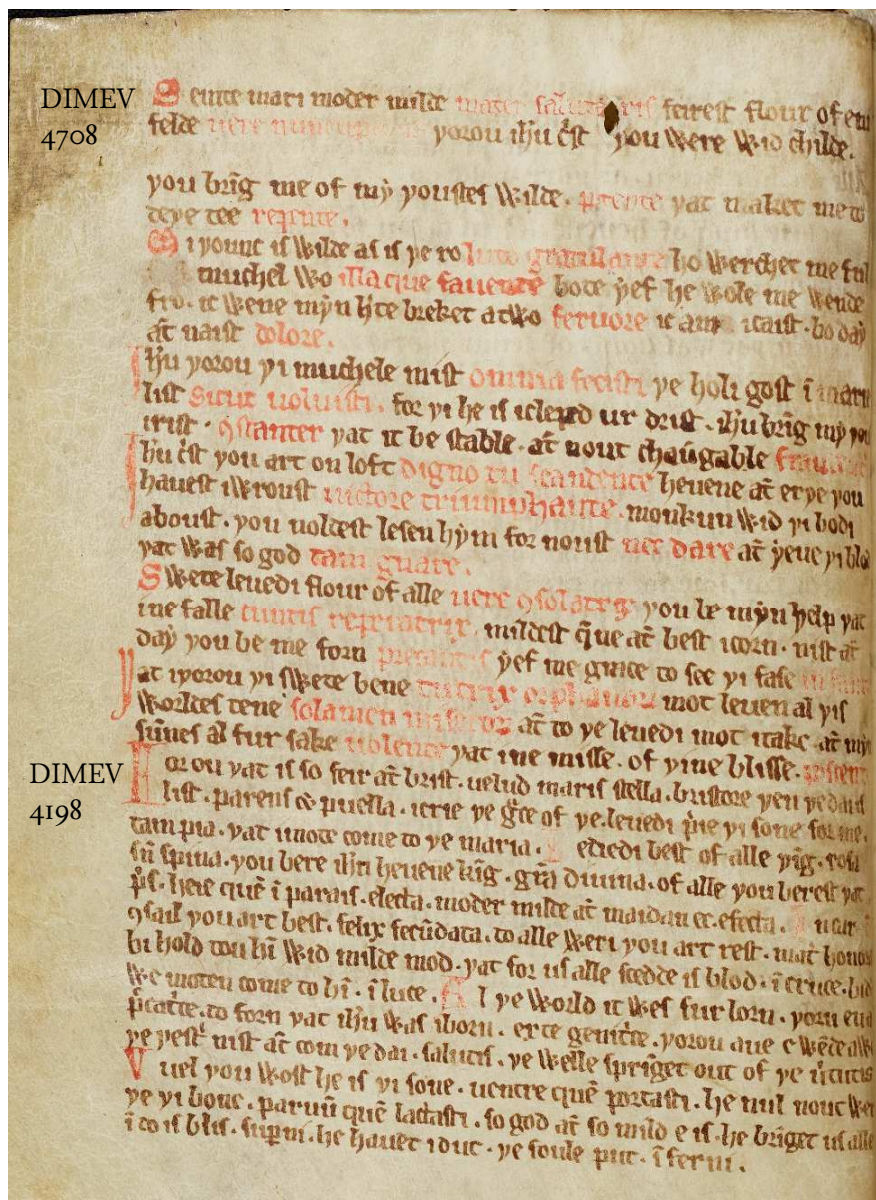 DIMEV
4708
Seinte mari moder milde mater salutaris feirest flour of eni
felde vere nuncuparis yorou ihu c̄st you were wid childe.
you brīg me of mẏ youstes wilde. potente yat maket me to
deye tee repente.
Mi yount is wilde as is ye ro luto gratulante ho werchet me ful
muchel wo illaque favente bote ẏef he wole me wende
fro. ic wene mẏn hʼte breket atwo fervore ic am icaist. bo daẏ
at̄ naist dolore.
Ihu yorou yi muchele mist omnia fecisti ye holi gost ī marie
list sicut voluisti. for yi he is icleped ur drist. ihu brīg mẏ yo
irist. ꝯstanter yat it be stable. at̄ nout chaūgable
Ihu c̄st you art on loft digno tu scandente hevene at̄ erye you
havest iwroust victore triumphante. monkun wid yi bodi
aboust. you noldest lesen hẏm for noust nec dare at̄ ẏeve yi blod
yat was so god tam
Swete levedi flour of alle vere ꝯsolatrix you be mẏn help yat
ine falle cuntis reparatrix. mildest q̄ne at̄ best icorn. nist at̄
daẏ you be me forn ẏef me grace to see yi fase
Yat iyorou yi swete bene tutrix orphanorum mot leven al yis
worldes tene solamen miserorum at̄ to ye levedi mot itake. at̄ mẏn
sūnes al fur sake volente yat ine misse. of yine blisse.
DIMEV
4198
For on yat is so feir at̄ brist. velud maris stella. bristore yen ye dais
list. parens & puella. icrie ye grace of ye. levedi pͥe yi sone for me.
tam pia. yat imote come to ye maria. Levedi best of alle yīg. rosa
sn̄ spina. you bere ihu hevene kīg. grā divina. of alle you berest yat
pͥs. heie quē ī parais. electa. moder milde at̄ maidan ec. efecta.
ꝯsail you art best. felix fecūdata. to alle weri you art rest. mat̄ honor
bi hold tou hī wid milde mod. yat for us alle scedde is blod. ī cruce. bid
we moten come to hī. ī luce. Al ye world it wes fur lorn. yorn eua
pͨcatͬce. to forn yat ihu was iborn. ex te genitͬce. yorou ave e wēde awei
ye yestͬ nist at̄ com ye dai. salutis. ye welle sprīget out of ye virtutis
Vuel you wost he is yi sone. ventre quē portasti. he nul nout wer
ye yi bone. parvū quē lactasti. so god at̄ so mild e is. he brīget us alle
ī to is blis. supͥni. he havet idut. ye foule put. īferni.